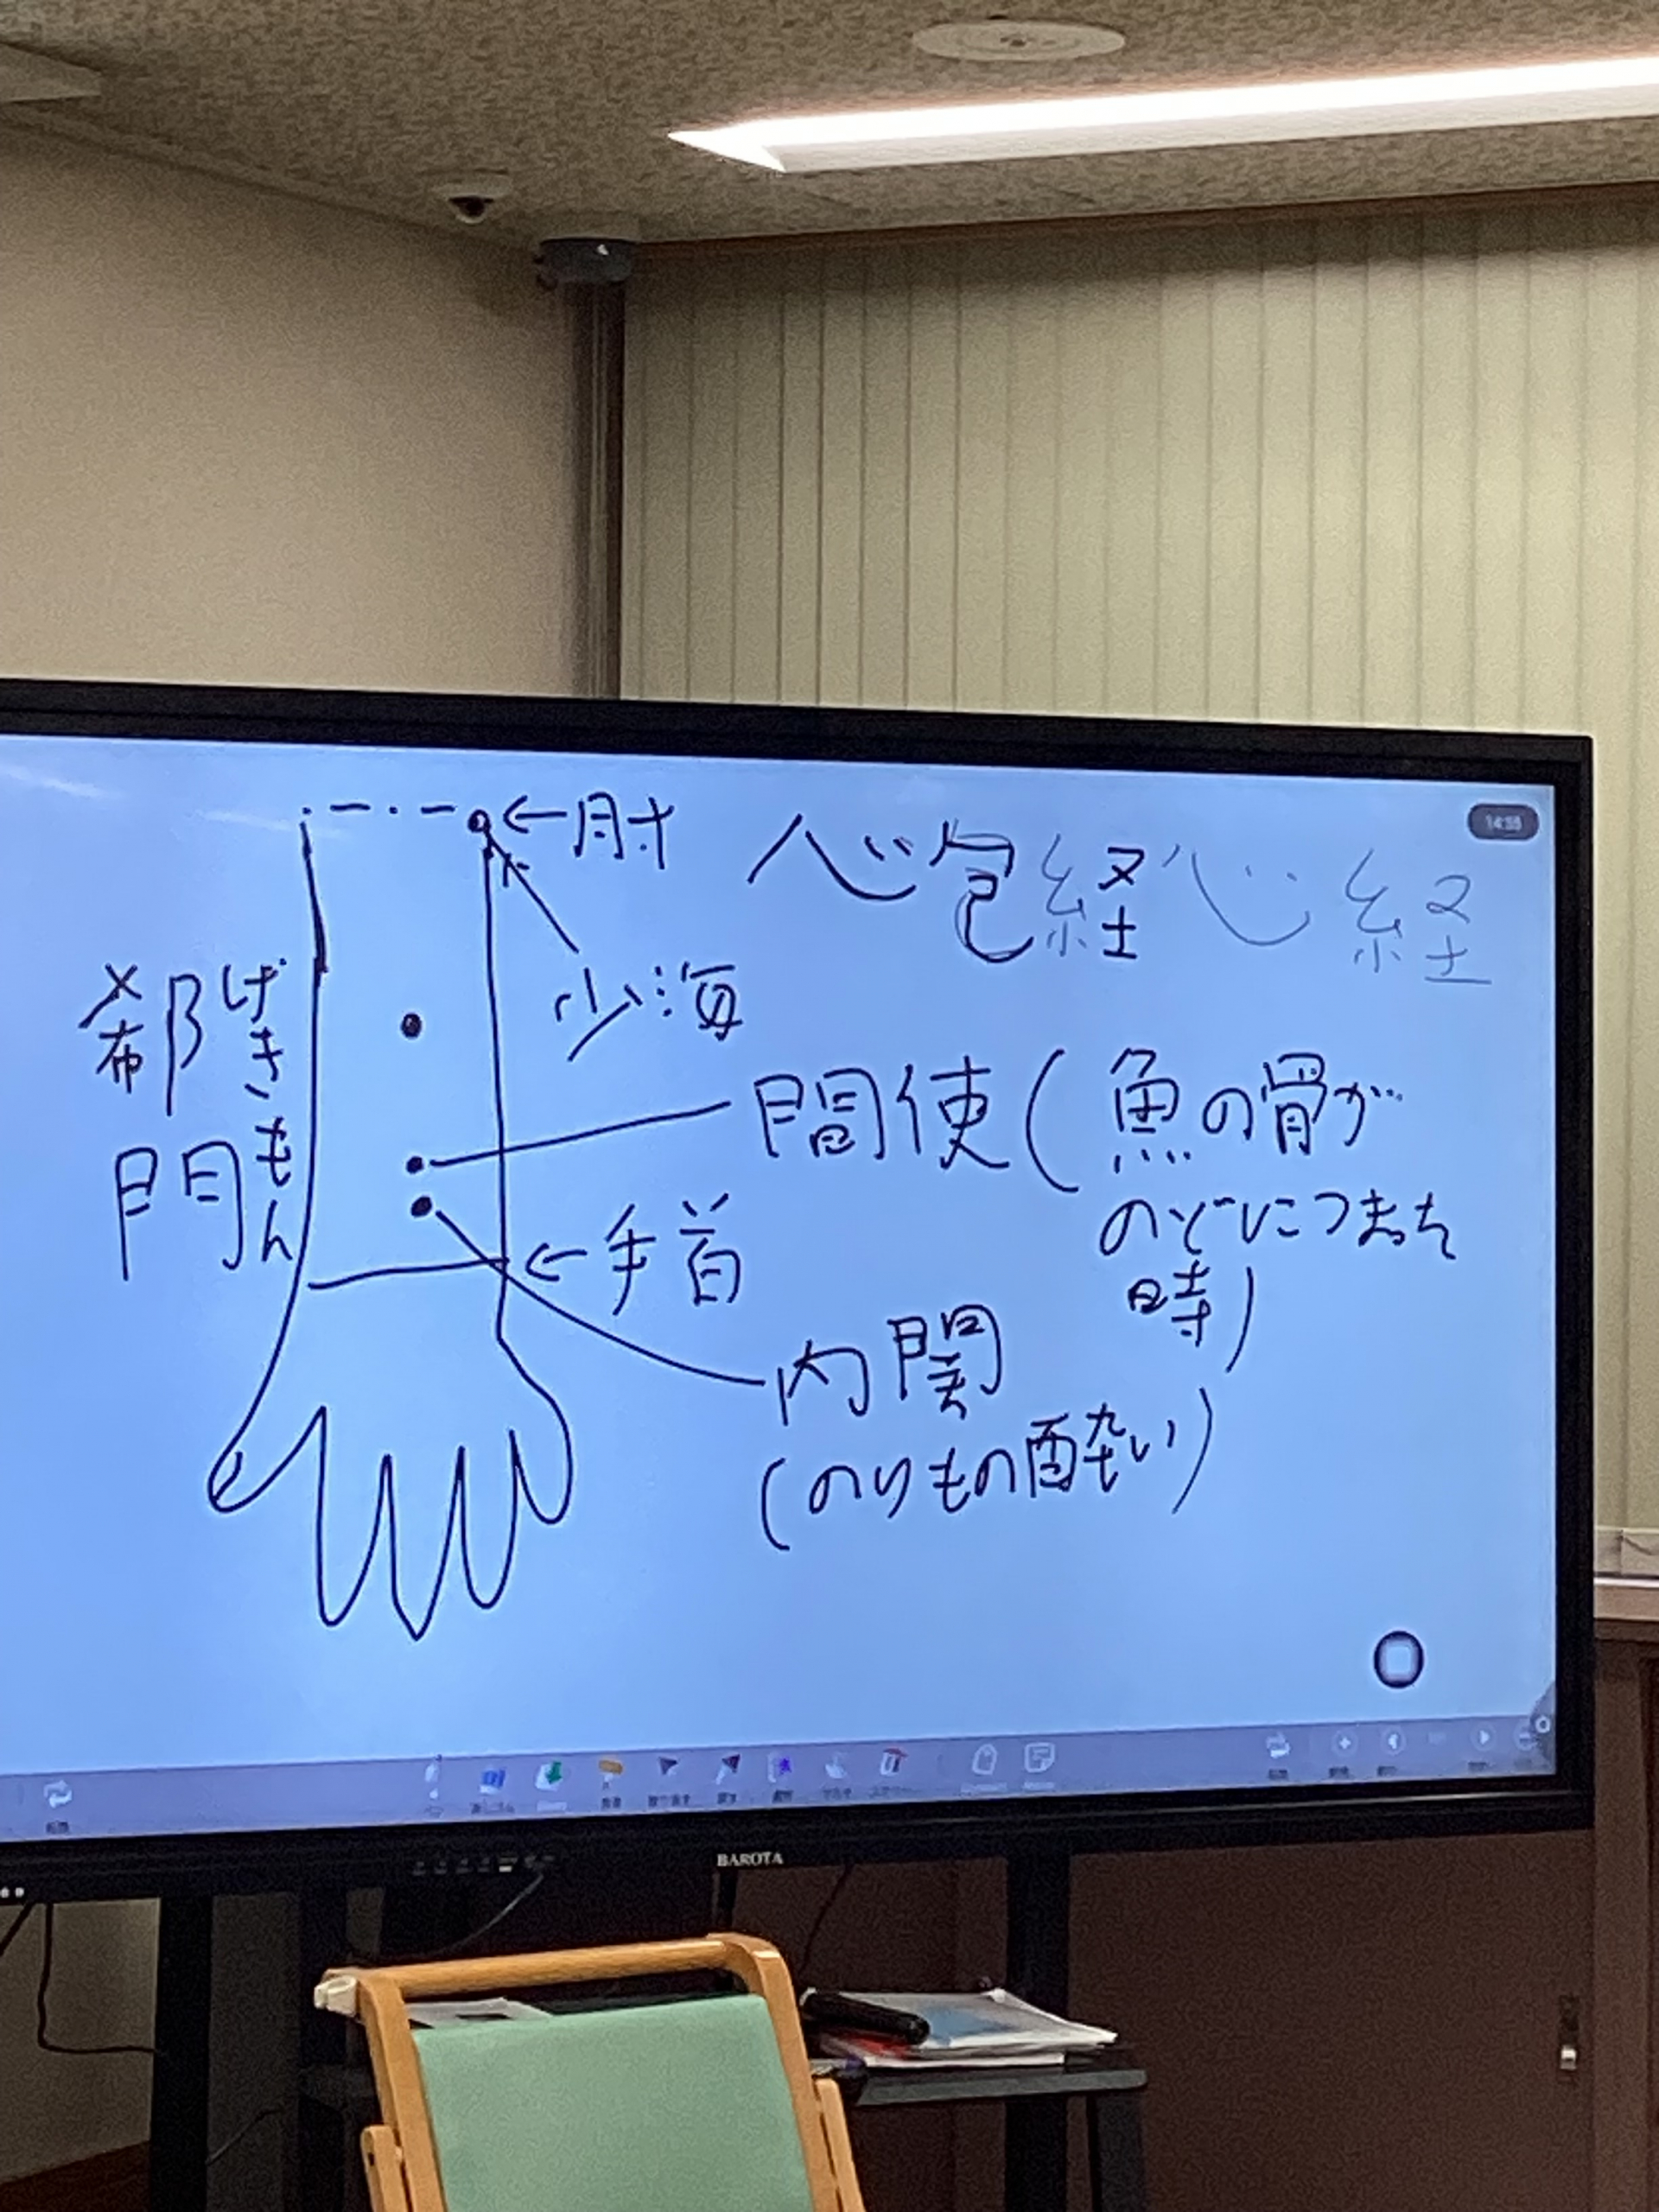 14:55
←肘
心包経 心経
少海
郄門
げきもん
間使(魚の骨が
のどにつまった
時)
←手首
内関
(のりもの酔い)
BAROTA